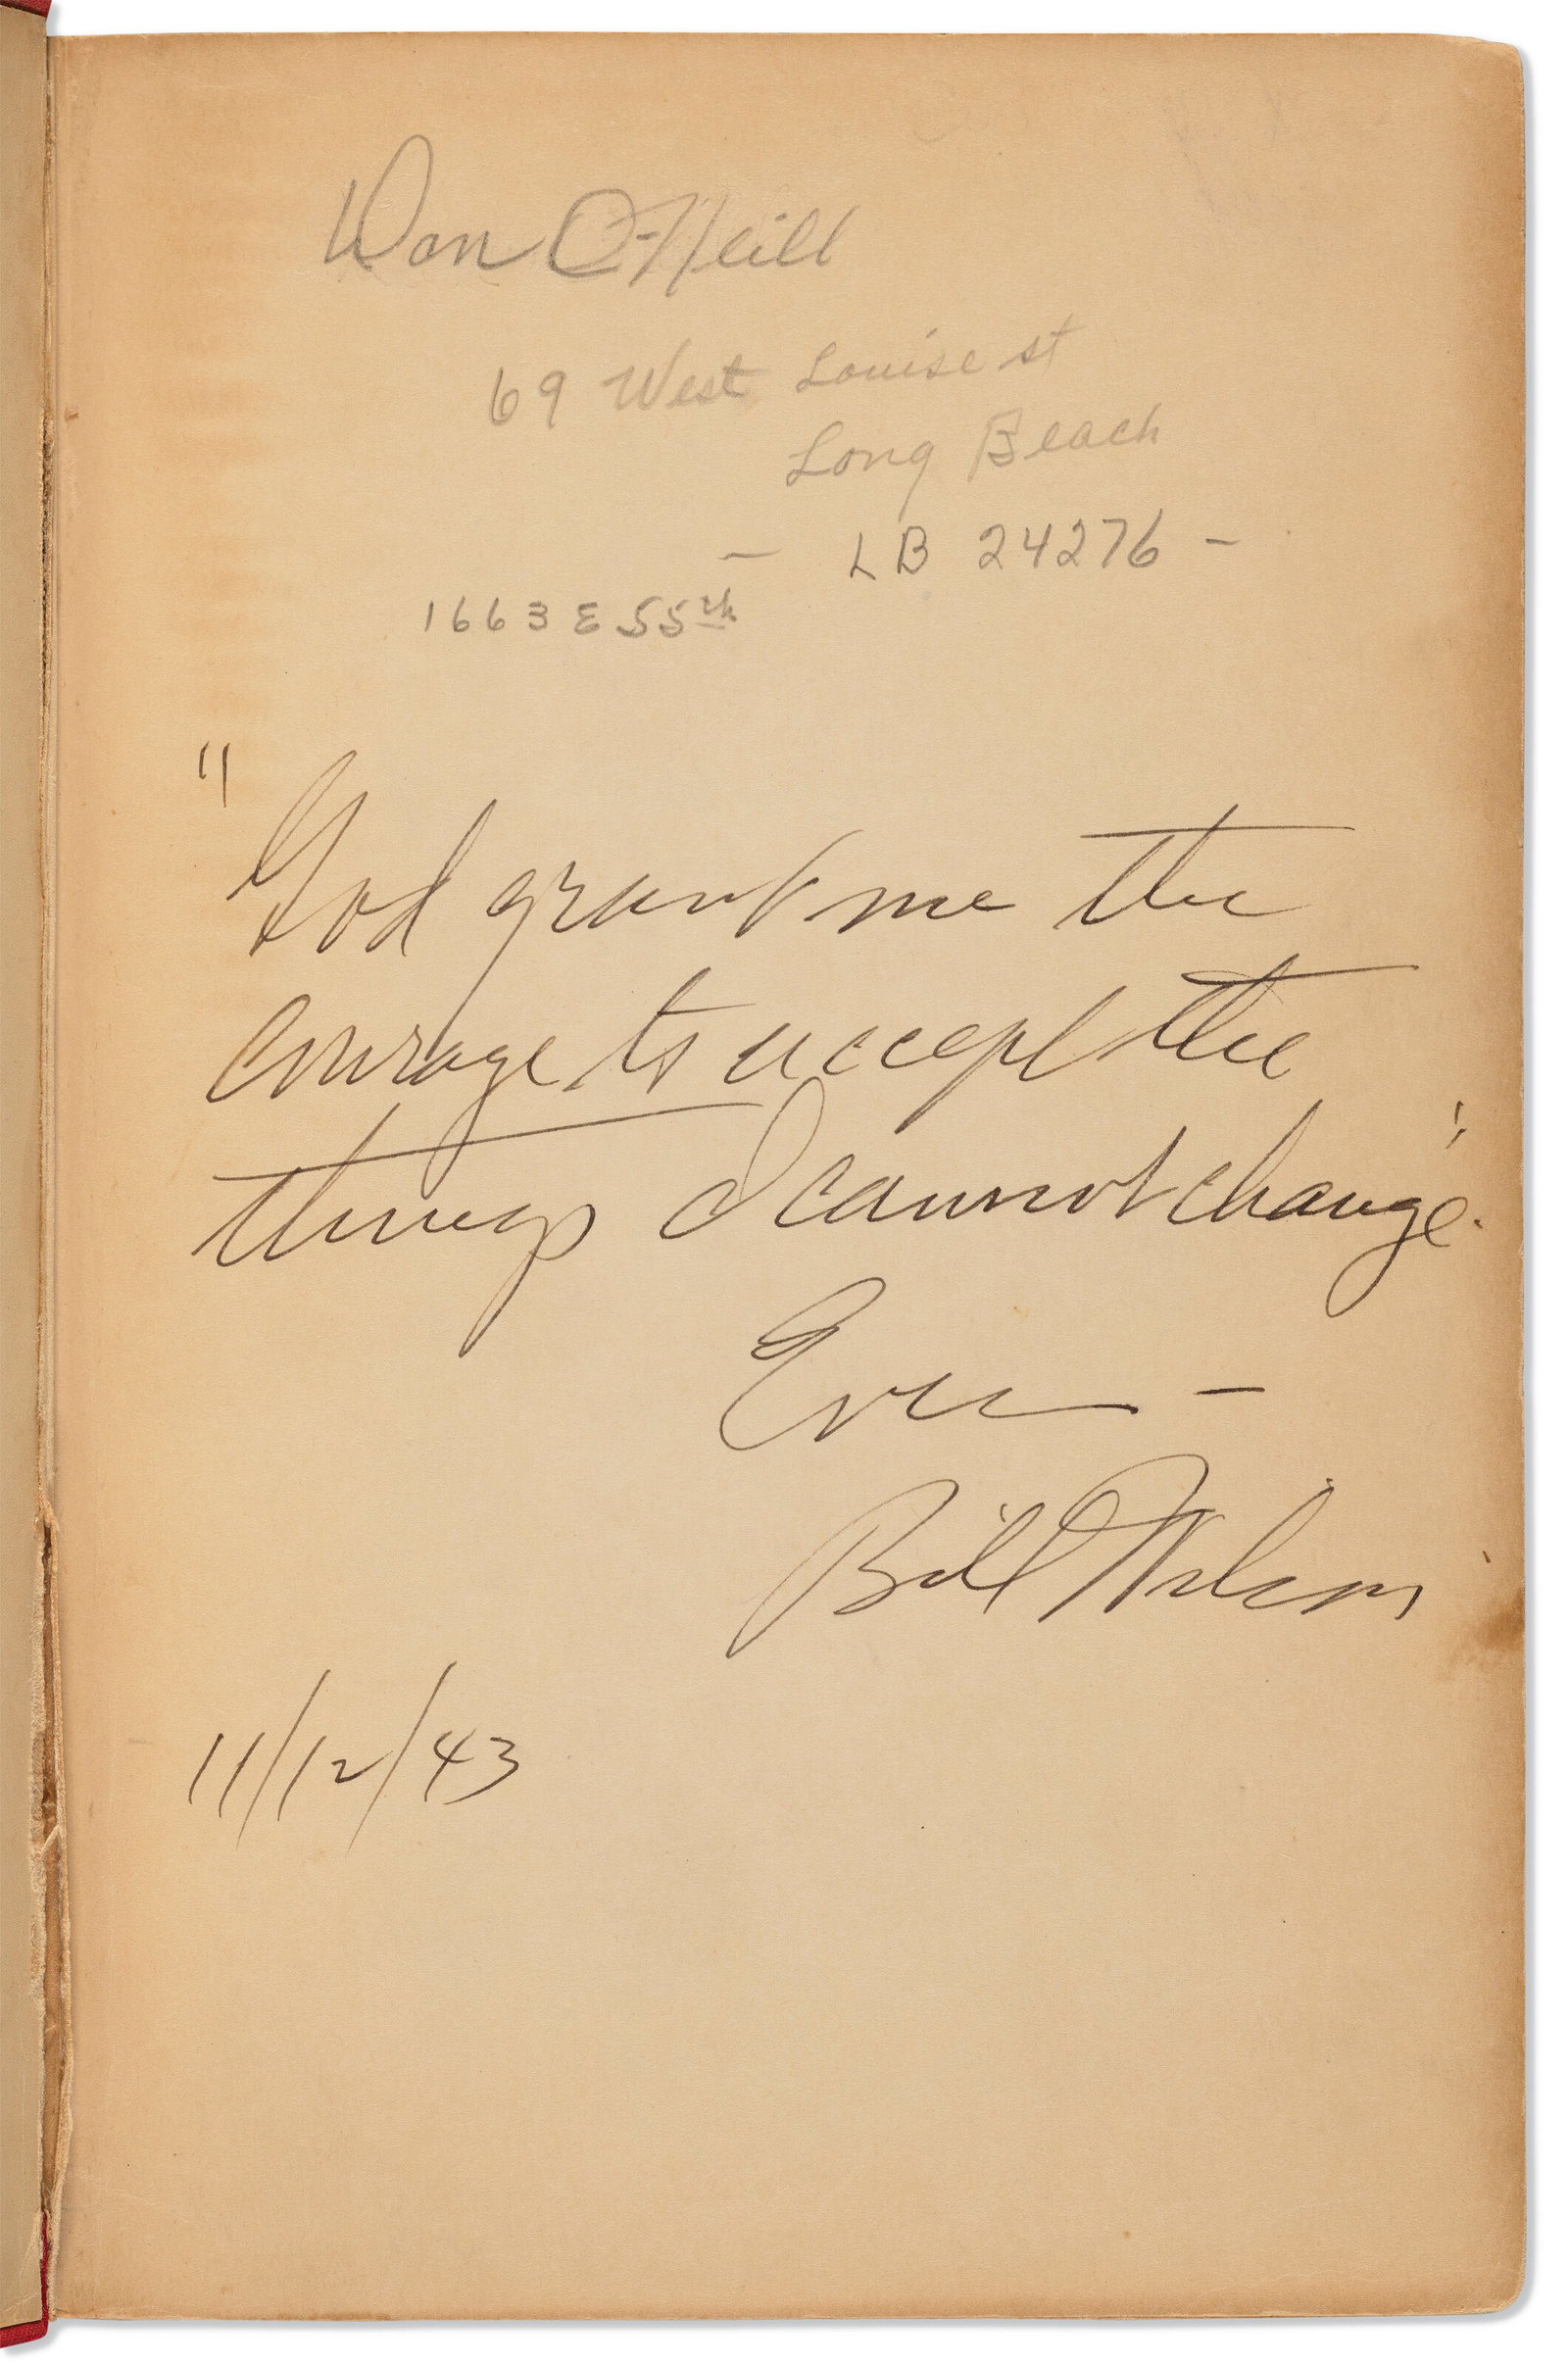 Don O'Neill
69 West Louise st
Long Beach
- LB 24276 -
1663 E 55th
"God grant me the
courage to accept the
things I cannot change."
Ever -
Bill Wilson
11/12/43